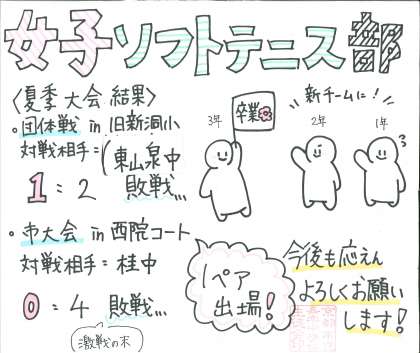 女子ソフトテニス部
〈夏季大会結果〉
。団体戦 in 旧新洞小
対戦相手=(東山泉中
1:2 敗戦...
3年
卒業
\\新チームに!//
2年
1年
。市大会 in 西院コート
対戦相手=桂中
0:4 敗戦...
激戦の末
1ペア
出場!
今後も応えん
よろしくお願い
します!